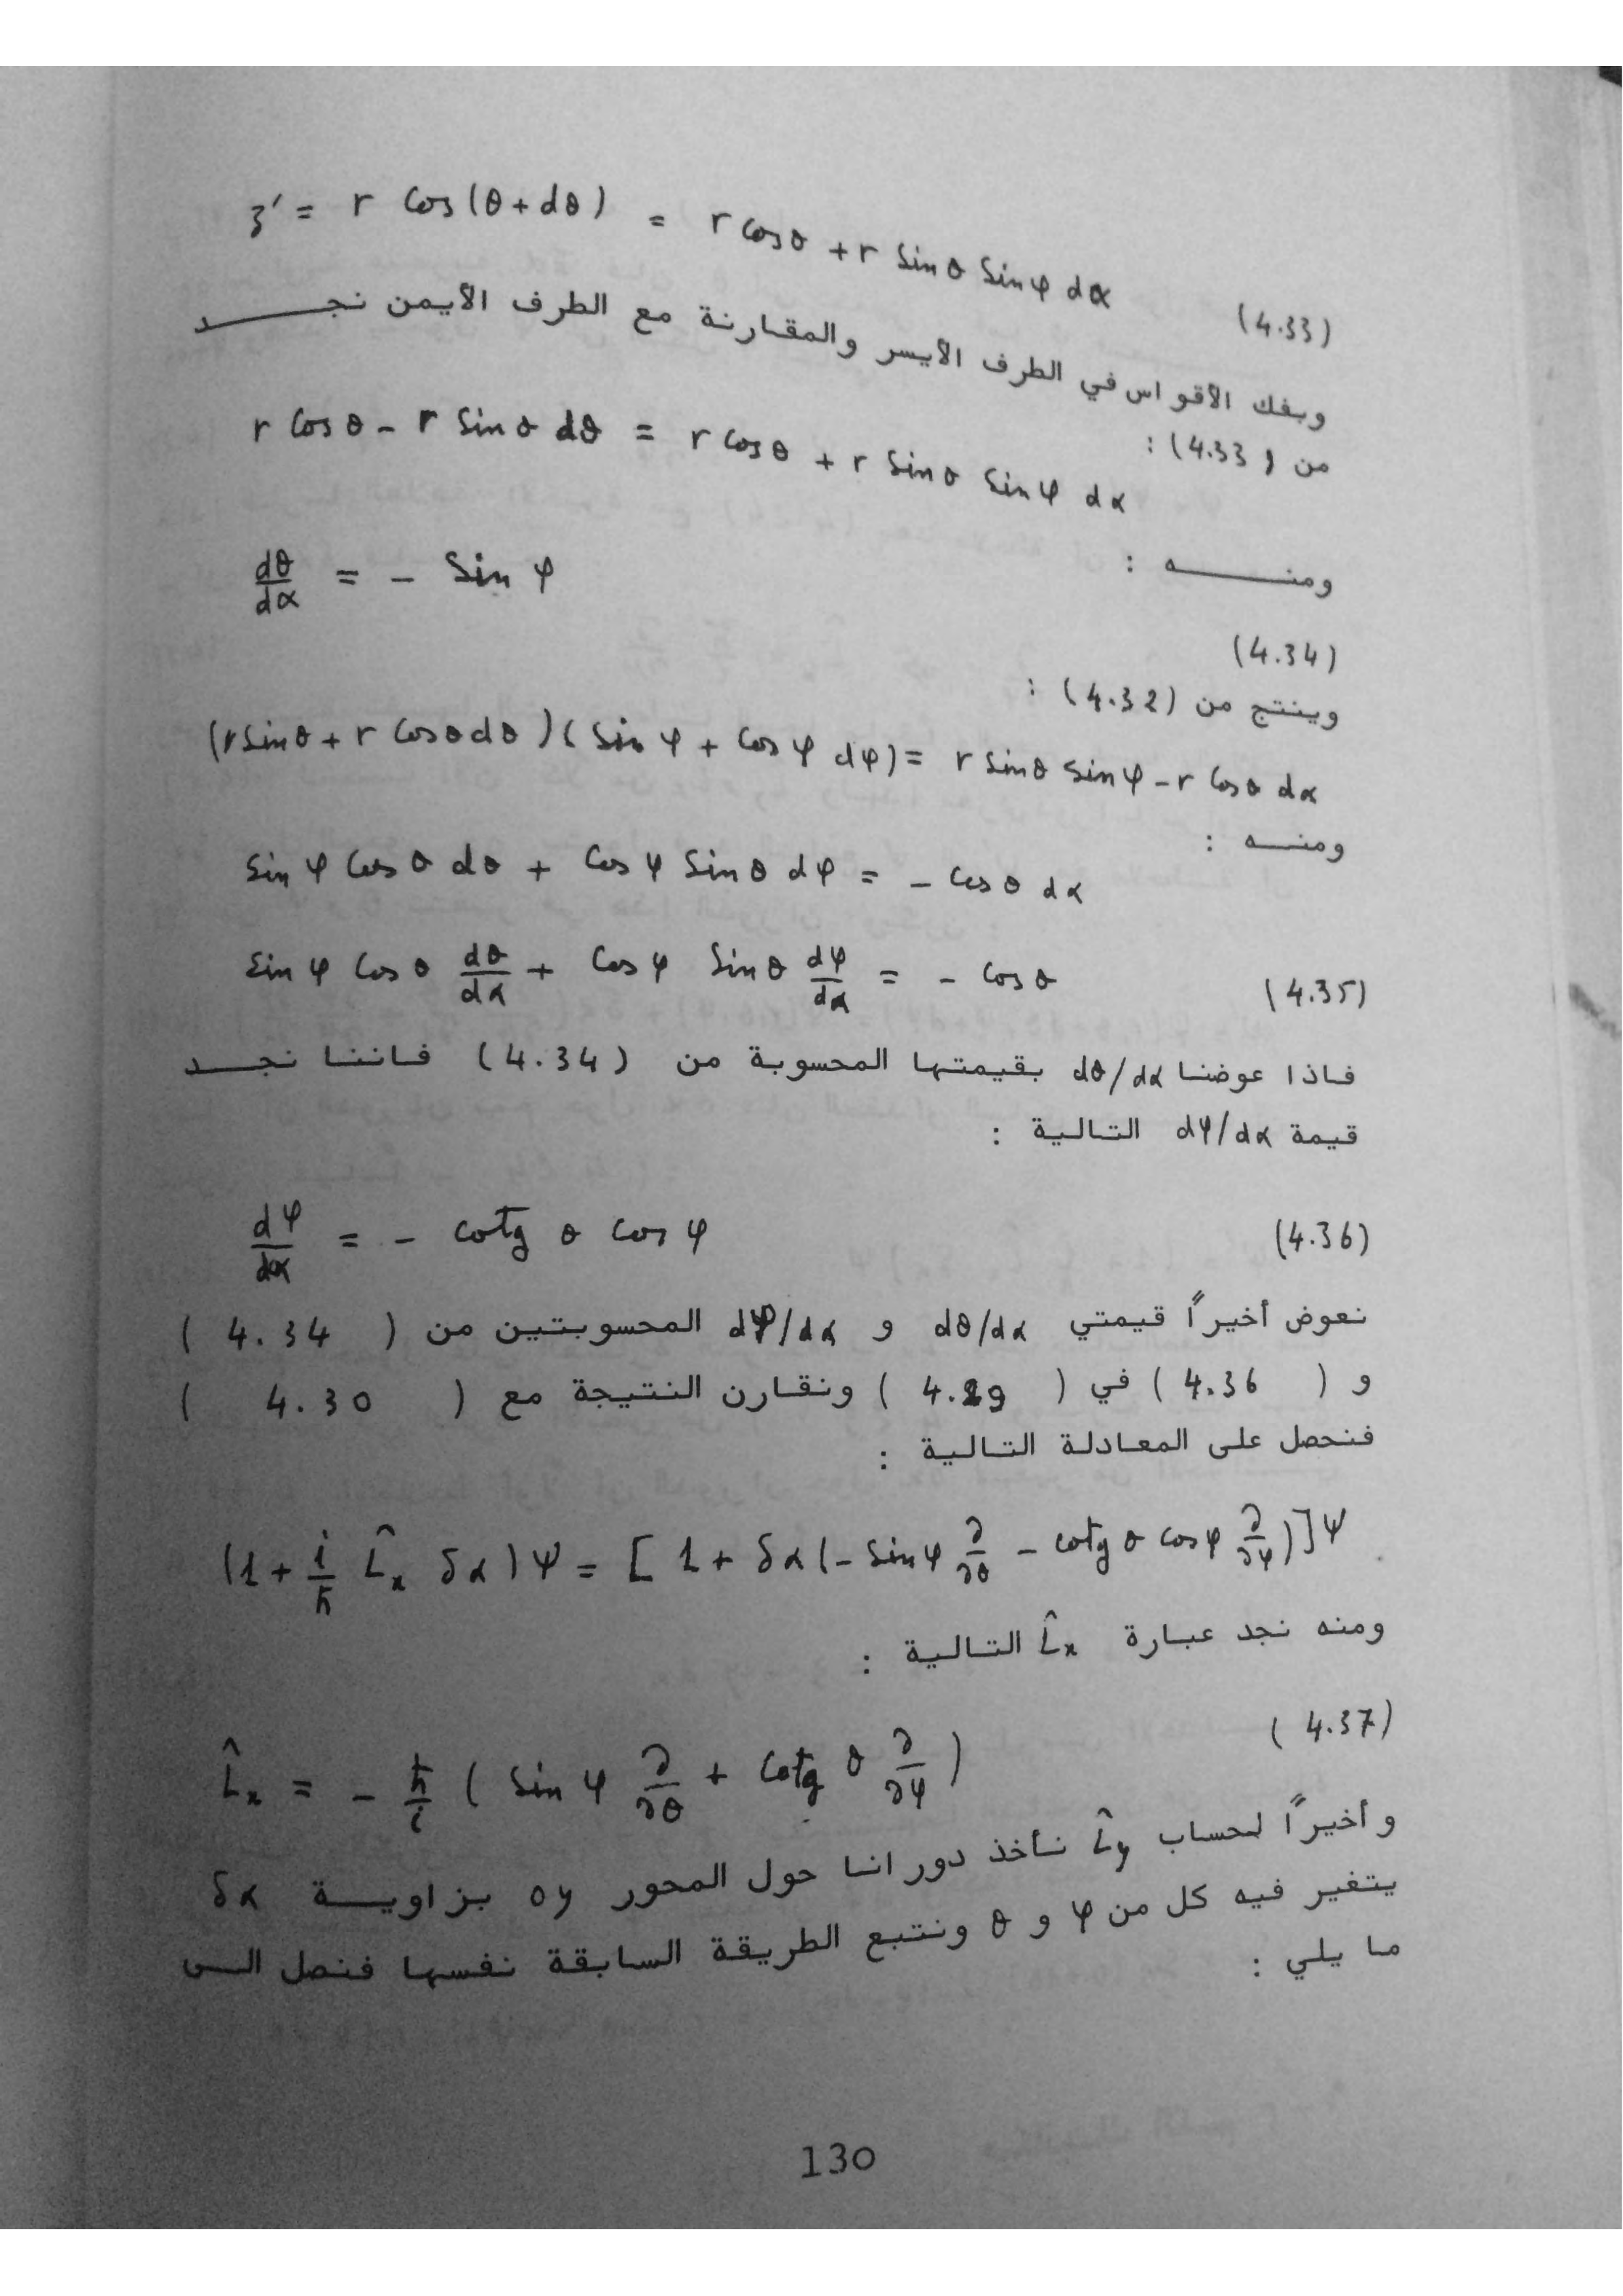 z' = r cos(θ+dθ) = r cosθ + r sinθ sinφ dα (4.33)
وبفك الأقواس في الطرف الأيسر والمقارنة مع الطرف الأيمن نجد
من (4.33) :
r cosθ - r sinθ dθ = r cosθ + r sinθ sinφ dα
ومنه :
dθ/dα = - sin φ
(4.34)
وينتج من (4.32) :
(r sinθ + r cosθ dθ)(sin φ + cos φ dφ) = r sinθ sinφ - r cosθ dα
ومنه :
sin φ cos θ dθ + cos φ sin θ dφ = - cos θ dα
sin φ cos θ dθ/dα + cos φ sin θ dφ/dα = - cos θ (4.35)
فاذا عوضنا dθ/dα بقيمتها المحسوبة من (4.34) فاننا نجد
قيمة dφ/dα التالية :
dφ/dα = - cotg θ cos φ (4.36)
نعوض أخيراً قيمتي dθ/dα و dφ/dα المحسوبتين من ( 4.34 )
و ( 4.36 ) في ( 4.29 ) ونقارن النتيجة مع ( 4.30 )
فنحصل على المعادلة التالية :
(1 + i/ħ L̂x δα) Ψ = [ 1 + δα (- sin φ ∂/∂θ - cotg θ cos φ ∂/∂φ)] Ψ
ومنه نجد عبارة L̂x التالية :
(4.37)
L̂x = - ħ/i ( sin φ ∂/∂θ + cotg θ ∂/∂φ )
وأخيراً لحساب L̂y نأخذ دورانا حول المحور oy بزاوية δα
يتغير فيه كل من φ و θ ونتبع الطريقة السابقة نفسها فنصل الى
ما يلي :
130